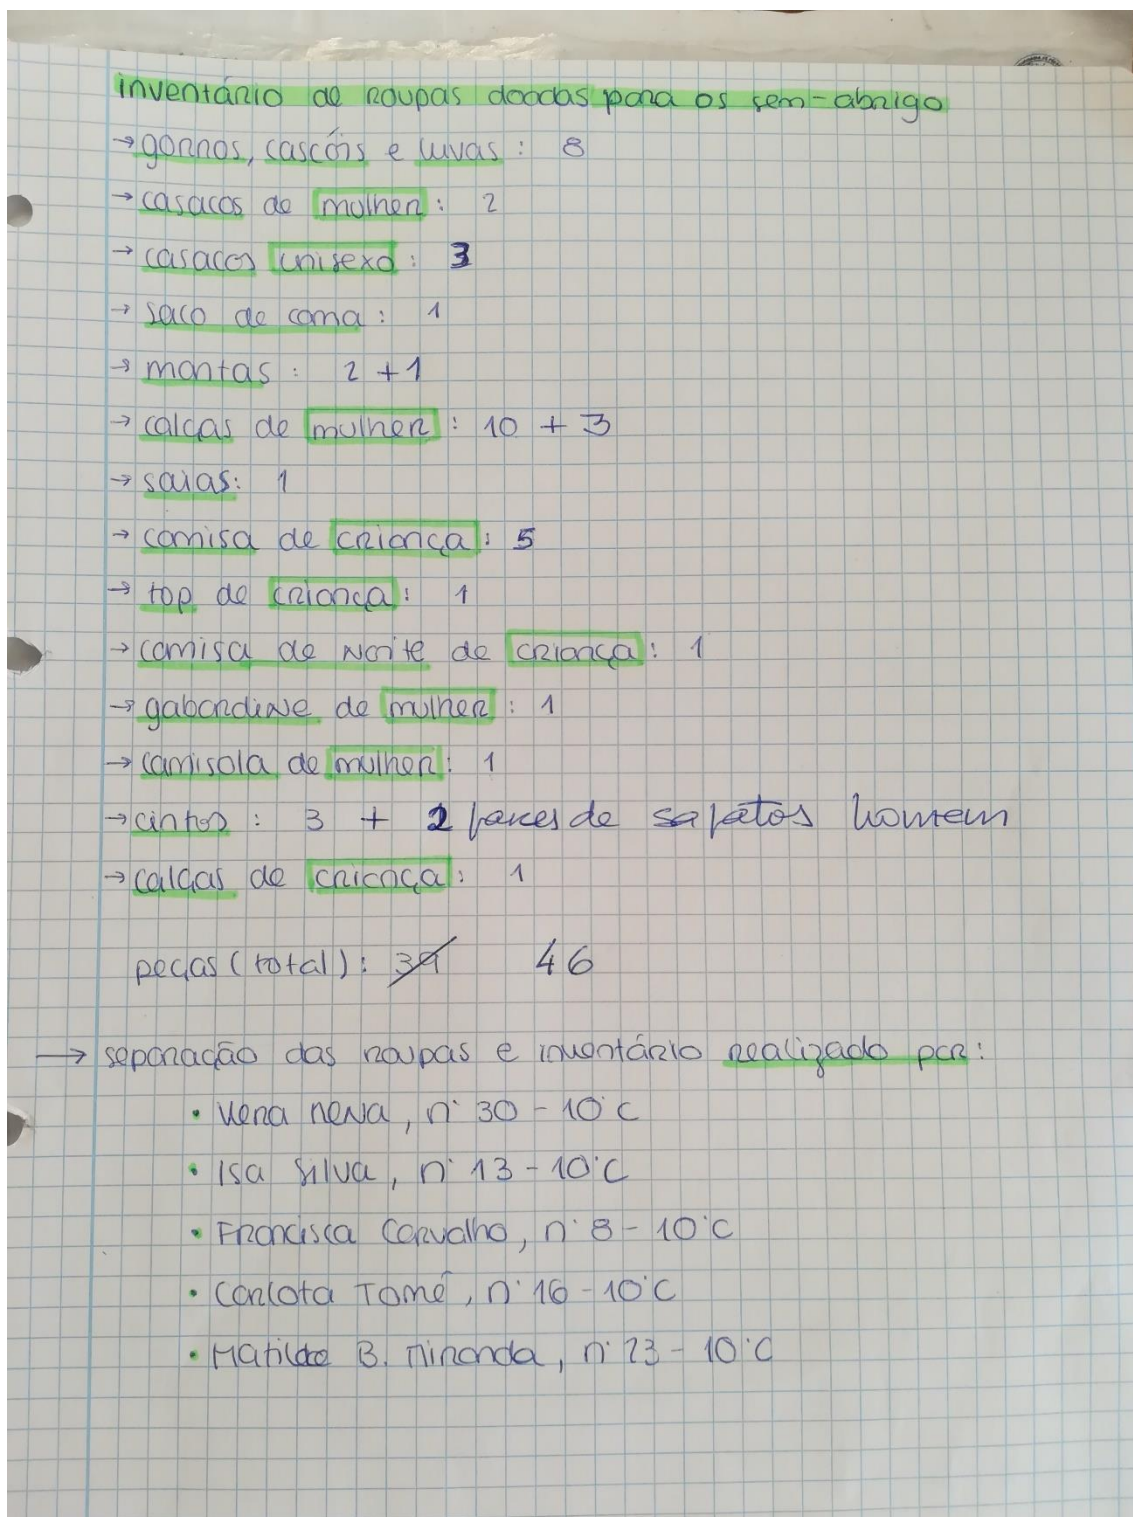 inventário de roupas doadas para os sem-abrigo
→ gorros, cascóis e luvas: 8
→ casacos de mulher: 2
→ casacos unisexo: 3
→ saco de cama: 1
→ mantas: 2 + 1
→ calças de mulher: 10 + 3
→ saias: 1
→ camisa de criança: 5
→ top de criança: 1
→ camisa de noite de criança: 1
→ gabardine de mulher: 1
→ camisola de mulher: 1
→ cintos: 3 + 2 pares de sapatos homem
→ calças de criança: 1
peças (total): 39 46
→ separação das roupas e inventário realizado por:
• neva, nº 30 - 10ºC
• Isa Silva, nº 13 - 10ºC
• Francisca Carvalho, nº 8 - 10ºC
• Carlota Tomé, nº 16 - 10ºC
• Matilde B. Miranda, nº 23 - 10ºC